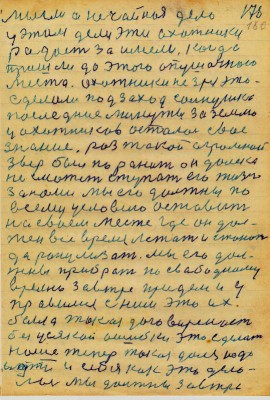 мысли а нечайная дело 176
у этом деле эти охотники
радост за имел, когда
пришли до этого опушоного
места. охотники не зря это
сделали под заход солнушка
последние минуты за земло
у охотников осталос свое
знание. раз такой огромный
звер был поранит он далека
не сможет ступат его тяжз
за нами мы его должны по
всему условию оставит
на своем месте где он дол-
жен все время лежат и стонат
да ранилзат. мы его дол-
жны прибрат по свабодному
времю завтре приедем и у
правимся с ним это их
была такая договореност
без усякой ошибки это сделат
наше тепер такая доля надо
идти и сил как это дело-
лос мы должны завтра